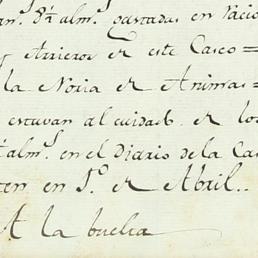 8ª almˢ gastadas en racio
y Arrieros de este Casco =
la Noria de Animas =
estuvan al cuidado de los
almˢ en el Diario de la Ca
en 1º de Abril..
A la buelta